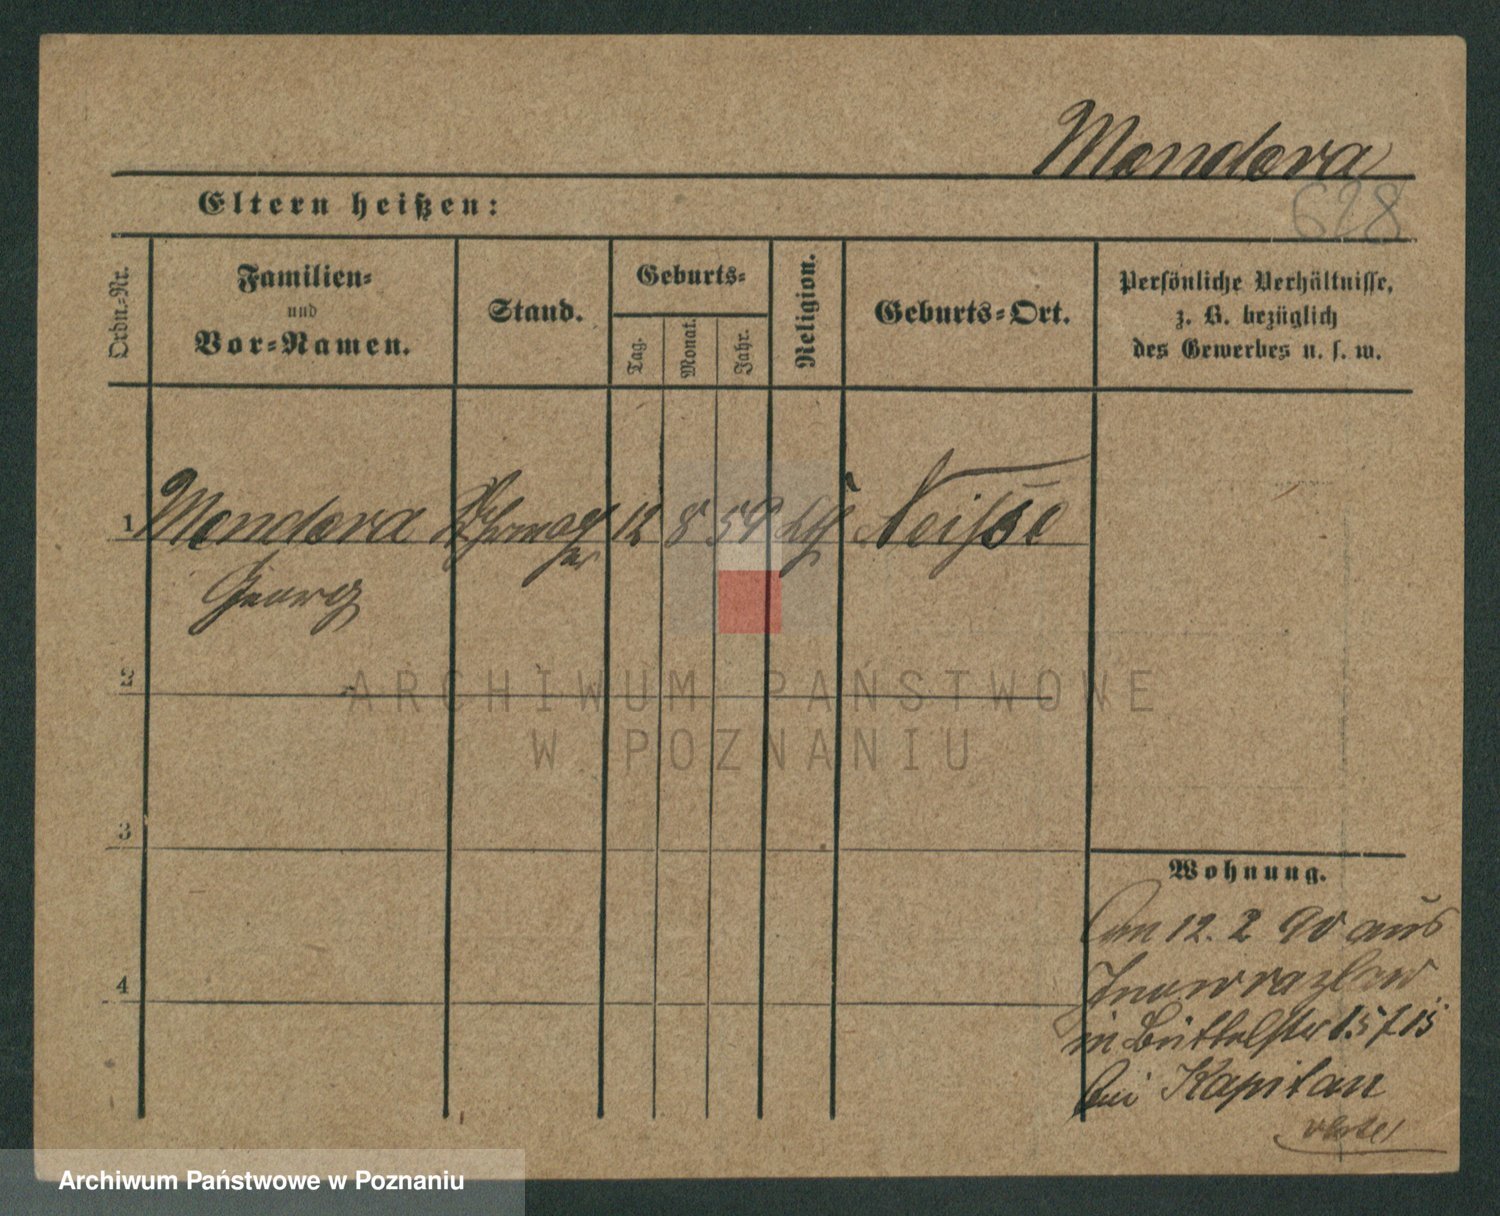 Mondora
628
Eltern heißen:
Ordn.-Nr.
Familien-
und
Vor-Namen.
Stand.
Geburts-
Tag.
Monat.
Jahr.
Religion.
Geburts-Ort.
Persönliche Verhältnisse,
z. B. bezüglich
des Gewerbes u. s. w.
1 Mondora 12 8 59 Neisse
Georg
2
ARCHIWUM PAŃSTWOWE
W POZNANIU
3
Wohnung.
am 12. 2 90 aus
4
Inowrazlaw
in Büttelstr
bei Kapitan
Archiwum Państwowe w Poznaniu